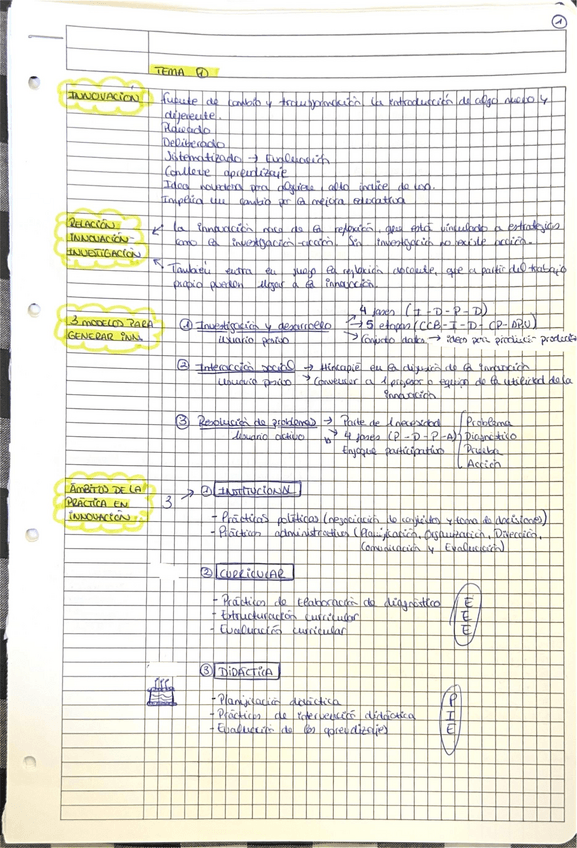 1
TEMA 1
INNOVACIÓN
Fuente de cambio y transformación. La introducción de algo nuevo y
diferente.
Planeado
Deliberado
Sistematizado → Evaluación
Conlleve aprendizaje
Idea novedosa para alguien, alto índice de uso.
Implica un cambio por la mejora educativa
RELACIÓN
INNOVACIÓN-
INVESTIGACIÓN
La innovación nace de la reflexión, que está vinculado a estrategias
como la investigación-acción. Sin investigación no existe acción.
También entra en juego la reflexión docente, que a partir del trabajo
propio pueden llegar a la innovación.
3 MODELOS PARA
GENERAR INN.
① Investigación y desarrollo
Usuario pasivo
4 fases (I - D - P - D)
→ 5 etapas (CCB - I - D - CP - DPU)
Conjunto datos → ideas para producir producto
② Interacción social → Hincapié en la difusión de la innovación
Usuario pasivo → Convencer a 1 profesor o equipo de la utilidad de la
innovación
③ Resolución de problemas → Parte de 1 necesidad
Usuario activo → 4 fases (P - D - P - A)
Enfoque participativo
Problema
Diagnóstico
Prueba
Acción
ÁMBITOS DE LA
PRÁCTICA EN
INNOVACIÓN
3 → ① INSTITUCIONAL
- Prácticas políticas (negociación de conflictos y toma de decisiones)
- Prácticas administrativas (Planificación, Organización, Dirección,
Comunicación y Evaluación)
② CURRICULAR
- Prácticas de elaboración de diagnóstico
- Estructuración curricular
- Evaluación curricular
E
E
E
③ DIDÁCTICA
- Planificación didáctica
- Prácticas de intervención didáctica
- Evaluación de los aprendizajes
P
I
E